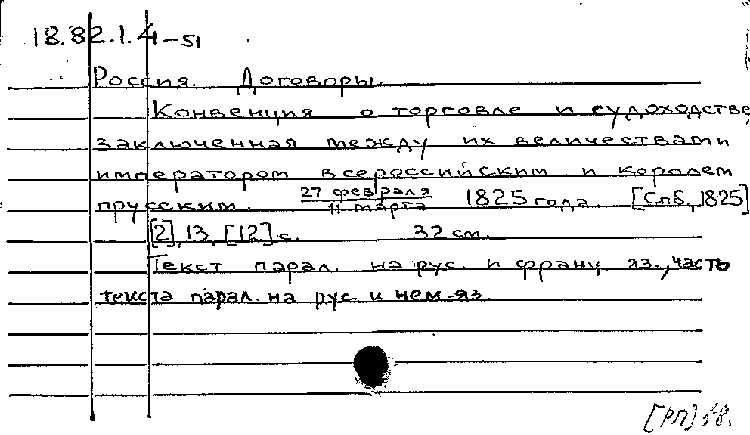 18.82.1.4-51
Россия. Договоры.
Конвенция о торговле и судоходстве,
заключенная между их величествами
императором всероссийским и королем
прусским. 27 февраля / 11 марта 1825 года. [Спб, 1825]
[2], 13, [12] с. 32 см.
Текст парал. на рус. и франц. яз., часть
текста парал. на рус. и нем. яз.
[РП]